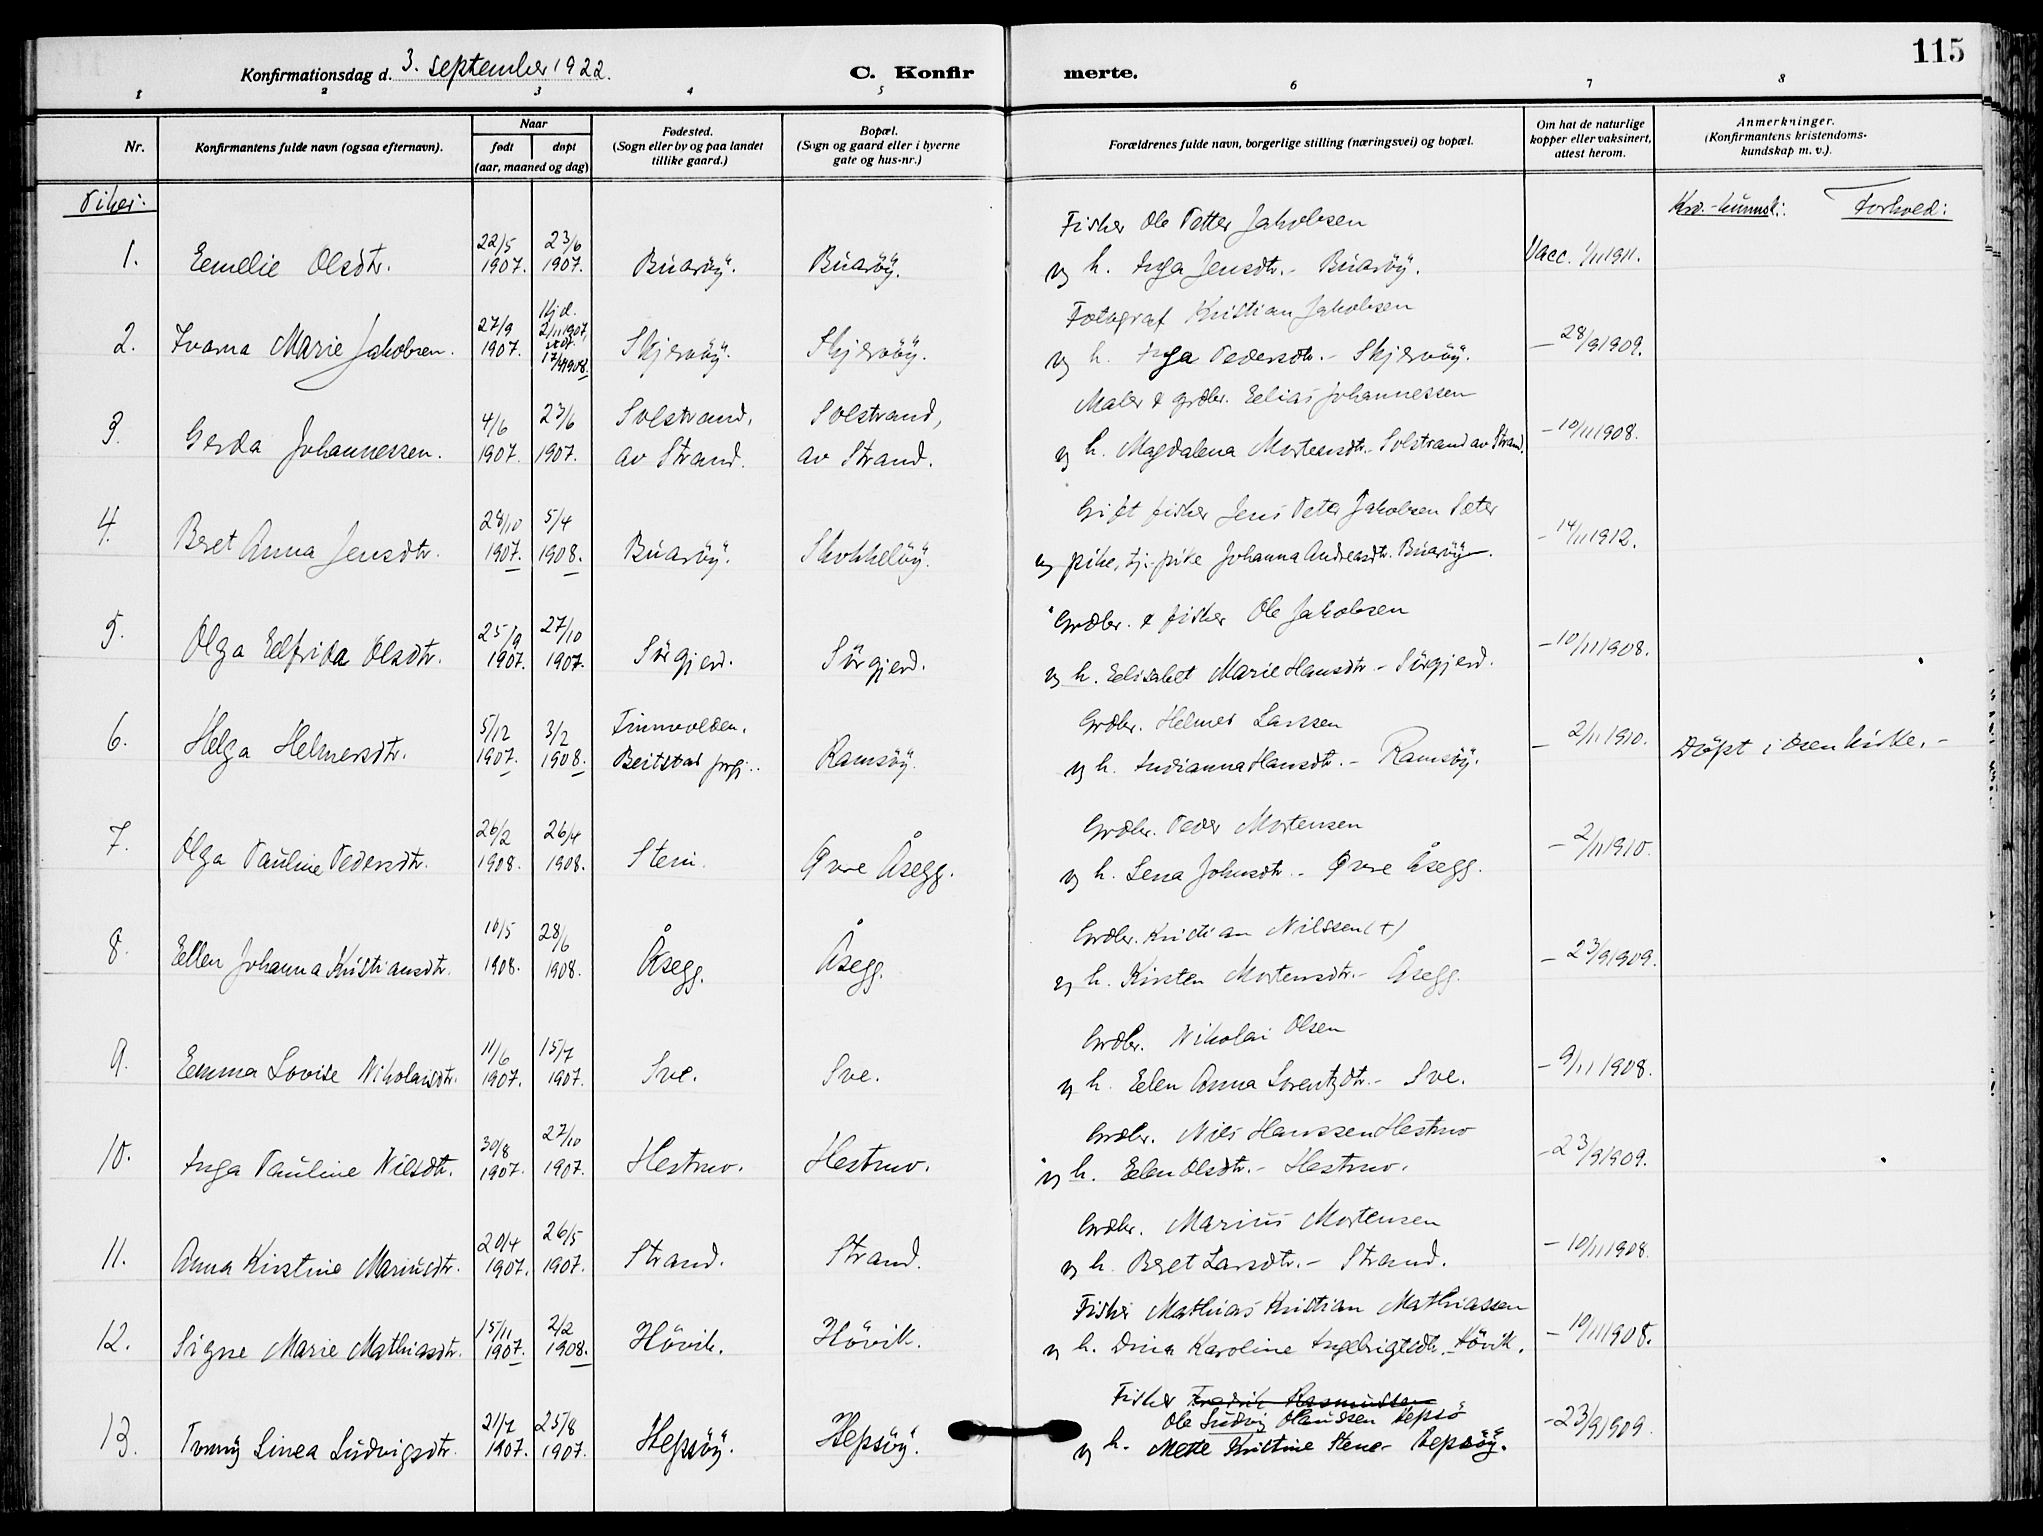 115
Konfirmationsdag d. 3. september 1922.
C. Konfirmerte.
1 2 3 4 5 6 7 8
Nr.
Konfirmantens fulde navn (ogsaa efternavn).
Naar
født
døpt
(aar, maaned og dag)
Fødested.
(Sogn eller by og paa landet
tillike gaard.)
Bopæl.
(Sogn og gaard eller i byerne
gate og hus-nr.)
Forældrenes fulde navn, borgerlige stilling (næringsvei) og bopæl.
Om hat de naturlige
kopper eller vaksinert,
attest herom.
Anmerkninger.
(Konfirmantens kristendoms-
kundskap m. v.).
Piker:
Krd.-kunnsk.: Forhold:
1. Emelie Olsdtr. 22/5 1907. 23/6 1907. Buaröÿ. Buaröÿ.
Fisker Ole Petter Jakobsen
og h. Inga Jensdtr. - Buaröÿ.
Vacc. 1/11 1911.
2. Ivarna Marie Jakobsen. 27/9 1907. Hj.d. 2/11 1907, 17/4 1908. Skjervöÿ. Skjervöÿ.
Fotograf Kristian Jakobsen
og h. Inga Pedersdtr. - Skjervöÿ.
- 28/9 1909.
3. Gerda Johannessen. 4/6 1907. 23/6 1907. Solstrand, av Strand. Solstrand, av Strand.
Maler & grdbr. Elias Johannessen
og h. Magdalena Mortensdtr. Solstrand av Strand.
- 10/11 1908.
4. Beret Anna Jensdtr. 28/10 1907. 5/4 1908. Buaröÿ. Skokkelöÿ.
Gift fisker Jens Peter Jakobsen Sæter
og pike, tj.-pike Johanna Andreasdtr. Buaröÿ.
- 14/11 1912.
5. Olga Elfrida Olsdtr. 25/9 1907. 27/10 1907. Sörgjerd. Sörgjerd.
Grdbr. & fisker Ole Jakobsen
og h. Elisabet Marie Hansdtr. - Sörgjerd.
- 10/11 1908.
6. Helga Helmersdtr. 5/12 1907. 3/2 1908. Finnvolden, Beitstad prgj. Ramsöÿ.
Grdbr. Helmer Larssen
og h. Indianna Hansdtr. - Ramsöÿ.
- 2/11 1910.
Döpt i Osen kirke. -
7. Olga Pauline Pedersdtr. 26/2 1908. 26/4 1908. Stein. Øvre Åsegg.
Grdbr. Peder Mortensen
og h. Lena Johnsdtr. - Øvre Åsegg.
- 2/11 1910.
8. Ellen Johanna Kristiansdtr. 10/5 1908. 28/6 1908. Åsegg. Åsegg.
Grdbr. Kristian Nilssen (+)
og h. Kirsten Mortensdtr. - Åsegg.
- 23/9 1909.
9. Emma Lovise Nikolaisdtr. 11/6 1907. 15/7 1907. Sve. Sve.
Grdbr. Nikolai Olsen
og h. Elen Anna Lorentzdtr. - Sve.
- 9/11 1908.
10. Inga Pauline Nilsdtr. 30/8 1907. 27/10 1907. Hestmo. Hestmo.
Grdbr. Nils Hanssen Hestmo
og h. Elen Olsdtr. - Hestmo.
- 23/9 1909.
11. Anna Kirstine Mariusdtr. 20/4 1907. 26/5 1907. Strand. Strand.
Grdbr. Marius Mortensen
og h. Beret Larsdtr. - Strand.
- 10/11 1908.
12. Signe Marie Mathiasdtr. 15/11 1907. 2/2 1908. Hövik. Hövik.
Fisker Mathias Kristian Mathiassen
og h. Dina Karoline Ingebrigtsdtr. - Hövik.
- 10/11 1908.
13. Tomÿ Linea Ludvigsdtr. 21/7 1907. 25/8 1907. Hepsöÿ. Hepsöÿ.
Fisker Fredrik Rasmussen
Ole Ludvig Olaussen Hepsö
og h. Mette Kristine Stene - Hepsöÿ.
- 23/9 1909.